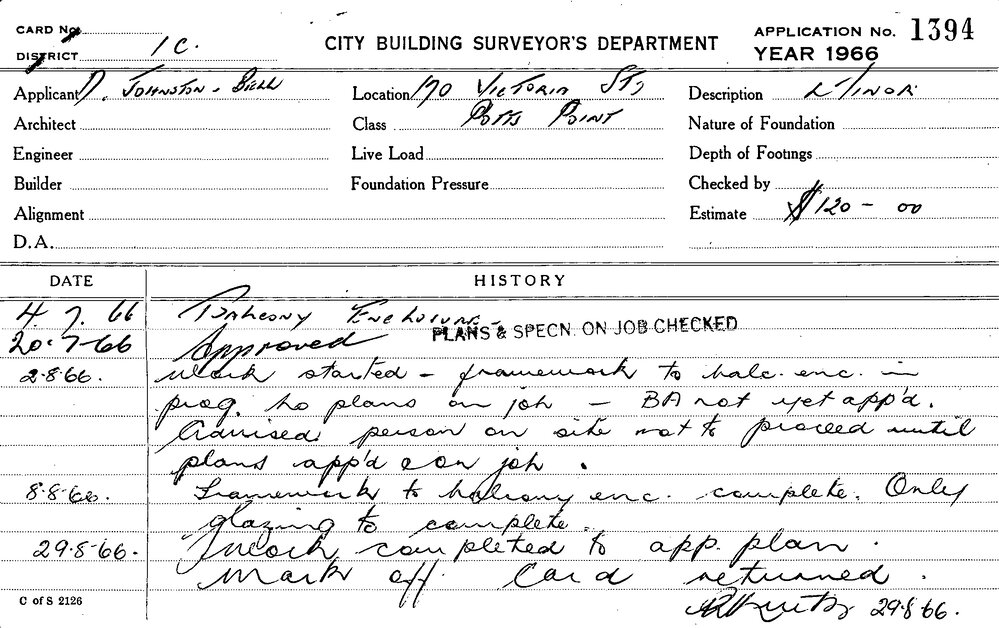 CARD No.
DISTRICT 1C.
CITY BUILDING SURVEYOR'S DEPARTMENT
APPLICATION No. 1394
YEAR 1966
Applicant D. JOHNSTON - BELL
Location 170 VICTORIA ST,
Description MINOR
Architect
Class POTTS POINT
Nature of Foundation
Engineer
Live Load
Depth of Footings
Builder
Foundation Pressure
Checked by
Alignment
Estimate $120 - 00
D.A.
DATE HISTORY
4. 7. 66 Balcony Enclosure -
PLANS & SPECN. ON JOB CHECKED
20-7-66 Approved
2.8.66. Work started - framework to balc. enc. in
prog. No plans on job - BA not yet app'd.
Advised person on site not to proceed until
plans app'd & on job.
8.8.66. Framework to balcony enc. complete. Only
glazing to complete.
29.8.66. Work completed to app. plan.
Mark off. Card returned.
29.8.66.
C of S 2126